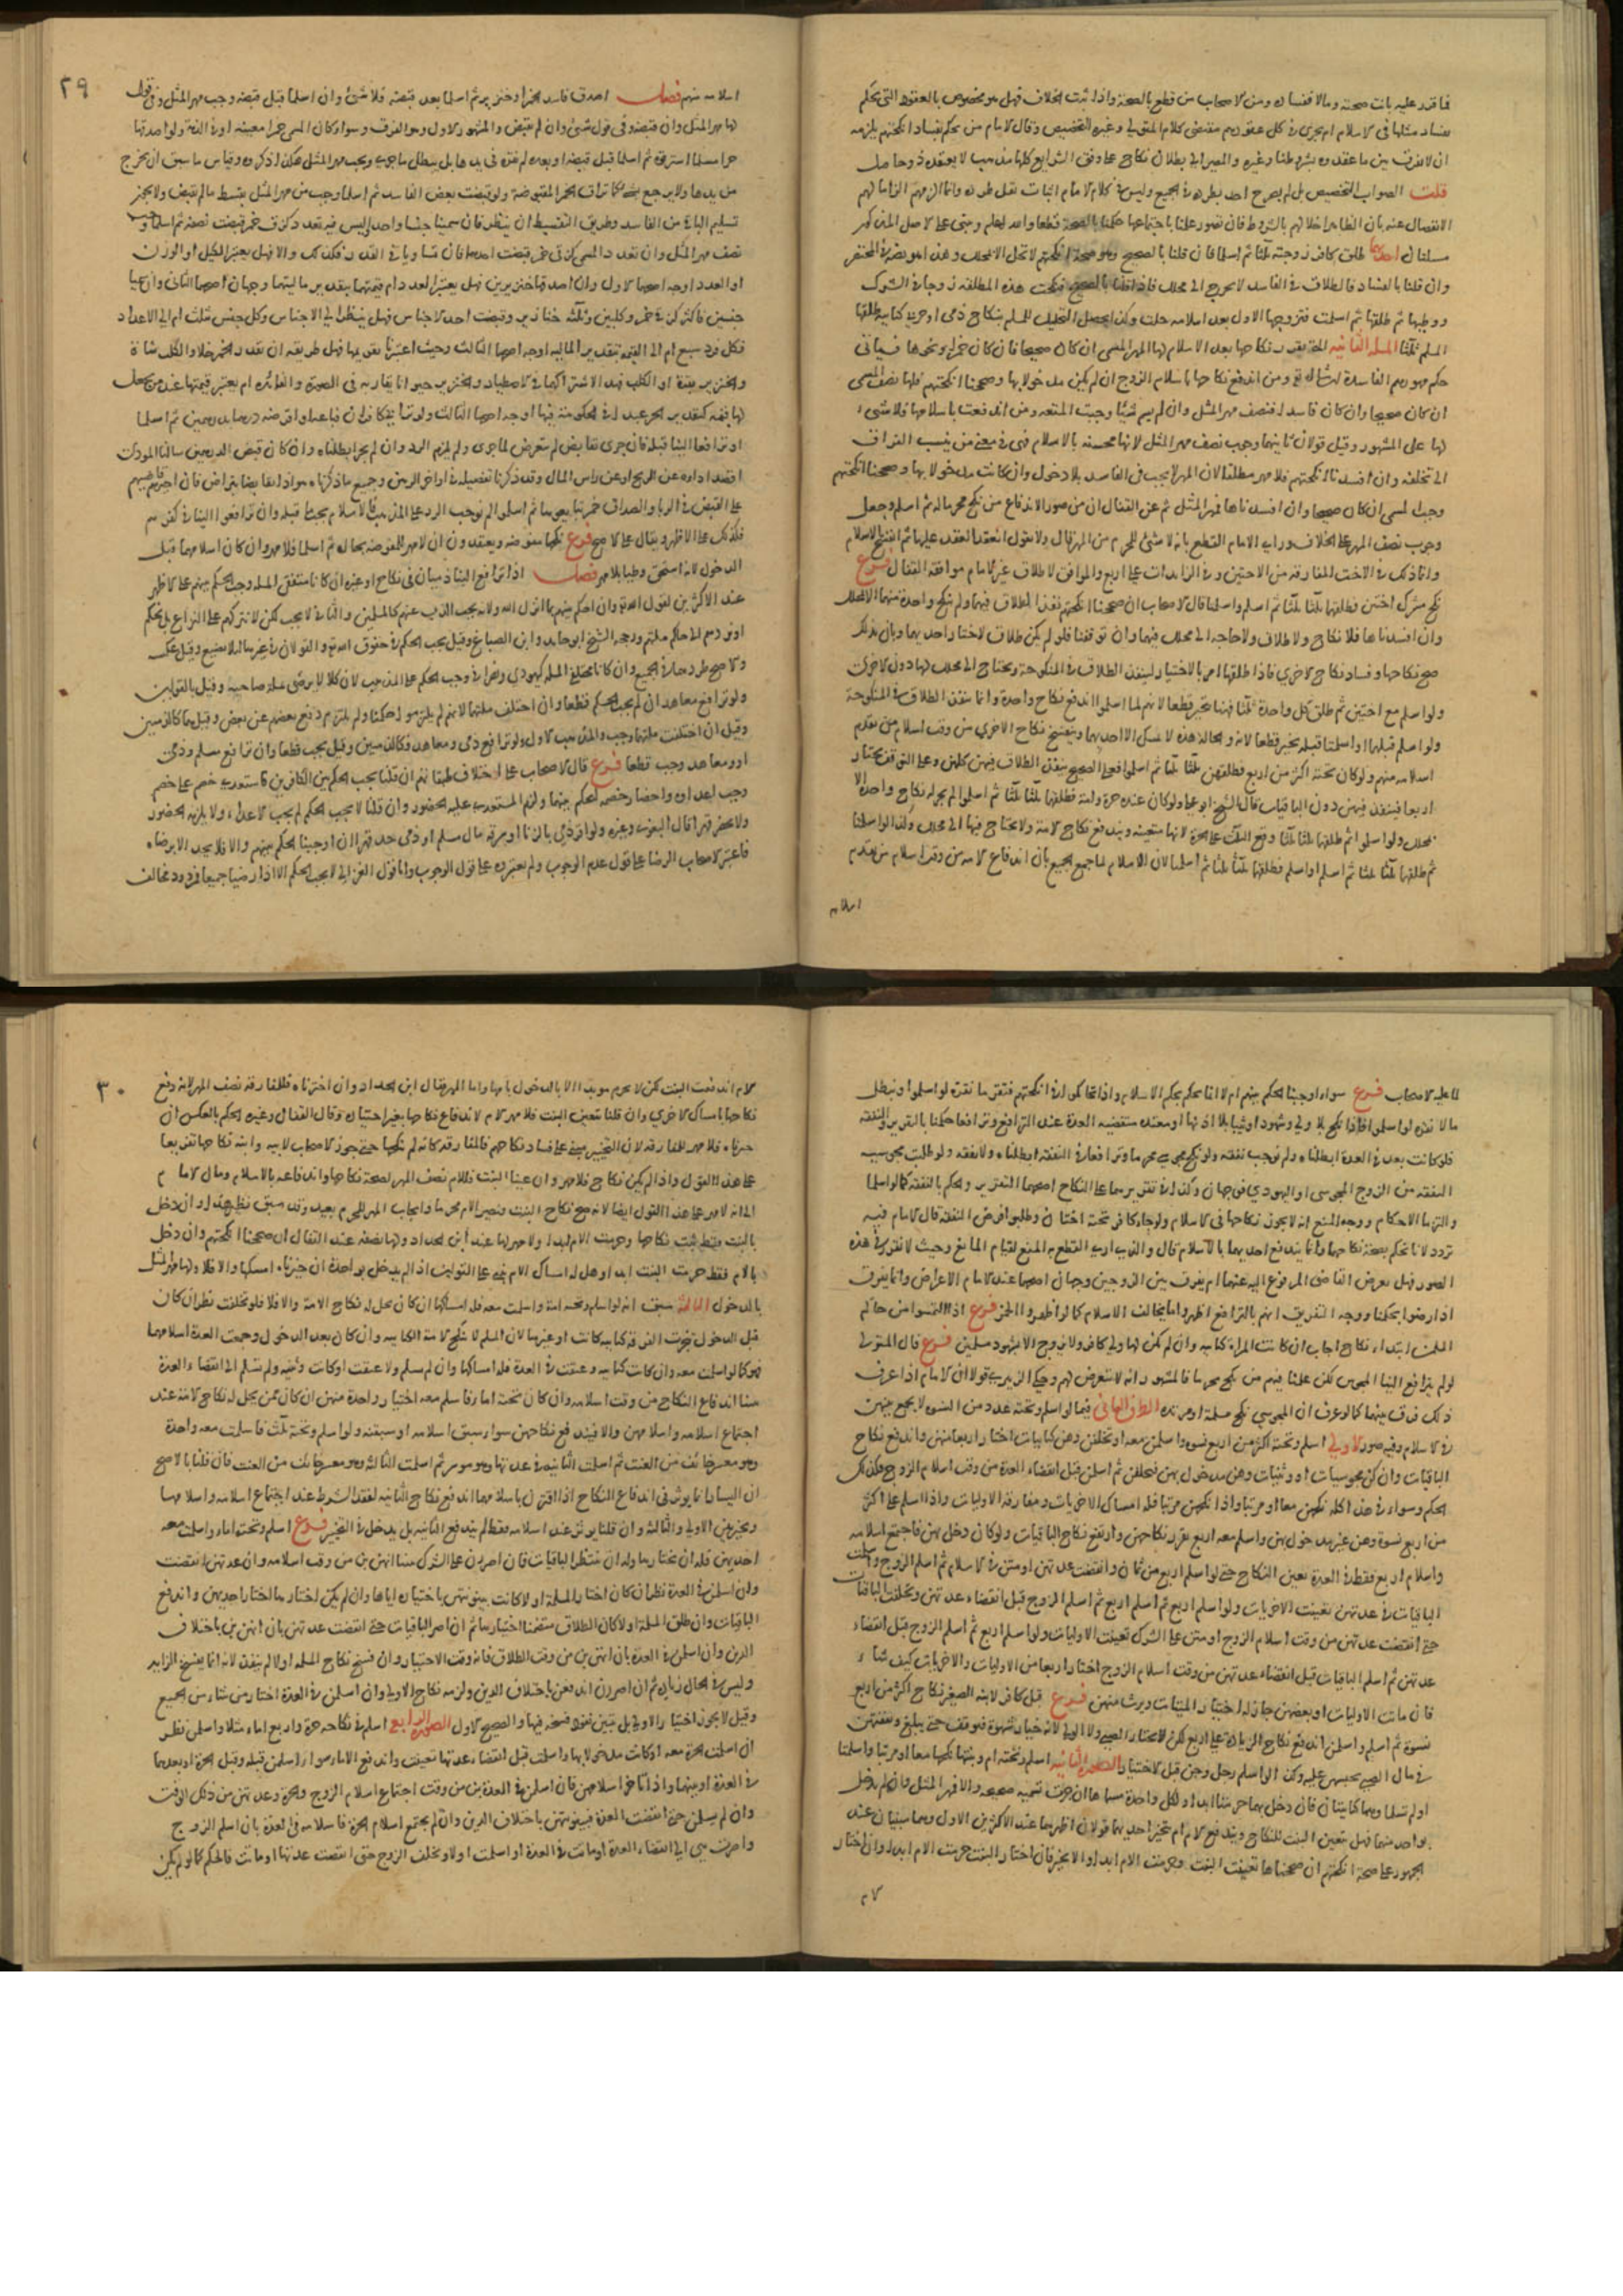 فما قرر عليه بانت صحته وما لا ففساده ومن الاصحاب من قطع بالصحة واذا ثبت الخلاف فهل هو مخصوص بالعقود التي يحكم
بفساد مثلها في الاسلام ام يجري في كل عقودهم مقتضى كلام المتولي وغيره التخصيص وقال الامام من يحكم بفساد انكحتهم يلزمه
ان لا يفرق بين ما عقدوه بشرطنا وغيره والمصير الى بطلان نكاح على وفق الشرايع كلها مذهب لا يعتقده ذو حاصل
قلت الصواب التخصيص بل لم يصرح احد بطرده في الجميع وليس في كلام الامام اثبات نقل طرده وانما الزمهم الزاما لهم
الانفصال عنه بان الظاهر اخلالهم بالشروط فان تصور علمنا باجتماعها حكمنا بالصحة قطعا والله اعلم ويبنى على الاصل المذكور
مسئلتان احدهما طلق كافر زوجته ثلثا ثم اسلما فان قلنا بالصحيح وهو صحة انكحتهم لا تحل الا بمحلل وهذا هو نصه في المختصر
وان قلنا بالفساد فالطلاق في الفاسد لا يحوج الى محلل فاذا قلنا بالصحيح فنكحت هذه المطلقة زوجا في الشرك
ووطيها ثم طلقها ثم اسلمت فتزوجها الاول بعد اسلامه حلت وكذا يحصل التحليل للمسلم بنكاح ذمي او حربي كتابية طلقها
المسلم ثلثا المسئلة الثانية المقرر نكاحها بعد الاسلام لها المهر المسمى ان كان صحيحا فان كان خمرا ونحوها فسياتي
حكم مهورهم الفاسدة ان شاء الله تع ومن اندفع نكاحها باسلام الزوج ان لم يكن مدخولا بها وصححنا انكحتهم فلها نصف المسمى
ان كان صحيحا وان كان فاسدا فنصف مهر المثل وان لم يسم شيئا وجبت المتعة ومن اندفعت باسلامها فلا شيء
لها على المشهور وقيل قولان ثانيهما وجوب نصف مهر المثل لانها محسنة بالاسلام فهي في معنى من ينسب الفراق
الى تخلفه وان افسدنا انكحتهم فلا مهر مطلقا لان المهر لا يجب في الفاسد بلا دخول وان كانت مدخولا بها وصححنا انكحتهم
وجب المسمى ان كان صحيحا وان افسدناها فمهر المثل ثم عن القفال ان من صور الاندفاع من نكح محرما له ثم اسلم وجعل
وجوب نصف المهر على الخلاف وراى الامام القطع بانه لا شيء للمحرم من المهر قال ولا نقول انعقد العقد عليها ثم انفسخ بالاسلام
وانما ذلك في الاخت المفارقة من الاختين وفي الزايدات على اربع والموافق لاطلاق غير الامام موافقة القفال فرع
نكح مشرك اختين وطلقها ثلثا ثلثا ثم اسلم واسلمتا قال الاصحاب ان صححنا انكحتهم نفذ الطلاق فيهما ولم ينكح واحدة منهما الا بمحلل
وان افسدناها فلا نكاح ولا طلاق ولا حاجة الى محلل فيهما وان توقفنا فلو لم يكن طلاق لاختار احديهما وبان بذلك
صحة نكاحها وفساد نكاح الاخرى فاذا طلقها امر بالاختيار لينفذ الطلاق في المنكوحة ويحتاج الى محلل لها دون الاخرى
ولو اسلم مع اختين ثم طلق كل واحدة ثلثا فهنا تخير قطعا لانهم لما اسلموا اندفع نكاح واحدة وانما ينفذ الطلاق في المنكوحة
ولو اسلم قبلهما او اسلمتا قبله تخير قطعا لانه والحالة هذه لا يمسك الا احديهما وينفسخ نكاح الاخرى من وقت اسلام من تقدم
اسلامه منهم ولو كان تحته اكثر من اربع فطلقهن ثلثا ثلثا ثم اسلموا فعلى الصحيح ينفذ الطلاق فيهن كلهن وعلى التوقف يختار
اربعا فينفذ فيهن دون الباقيات قال الشيخ ابو علي ولو كان عنده حرة وامة فطلقها ثلثا ثلثا ثم اسلموا لم يجز له نكاح واحدة الا
بمحلل ولو اسلموا ثم طلقها ثلثا ثلثا وقع الثلث على الحرة لانها متعينة ويندفع نكاح الامة ولا يحتاج فيها الى محلل وكذا لو اسلمتا
ثم طلقها ثلثا ثلثا ثم اسلم او اسلم فطلقها ثلثا ثلثا ثم اسلمتا لان الاسلام لما جمع الجميع بان اندفاع الامة من وقت اسلام من تقدم
اسلامه
٢٩
اسلامه منهم فصل اصدق فاسدا خمرا او خنزير ثم اسلما بعد قبضه فلا شيء وان اسلما قبل قبضه وجب مهر المثل وفي قول
لها مهر المثل وان قبضته وفي قول لا شيء وان لم تقبض والمشهور الاول وهو الفرق وسواء كان المسمى خمرا معينة او في الذمة ولو اصدقها
حرا مسلما استرقوه ثم اسلما قبل قبضه او بعده لم نقره في يدها بل يبطل ما جرى ويجب مهر المثل هكذا ذكروه وقياس ما سبق ان يخرج
من يدها ولا يرجع بشيء كما تراق الخمر المقبوضة ولو قبضت بعض الفاسد ثم اسلما وجب من مهر المثل بقسط ما لم يقبض ولا يجوز
تسليم الباقي من الفاسد وطريق التقسيط ان ينظر فان سميا جنسا واحدا وليس فيه تعدد كزق خمر قبضت نصفه ثم اسلما وجب
نصف مهر المثل وان تعدد المسمى كزقي خمر قبضت احدهما فان تساويا في القدر فكذلك والا فهل يعتبر الكيل او الوزن
او العدد اوجه اصحها الاول وان اصدقها خنزيرين فهل يعتبر العدد ام قيمتهما بتقدير ماليتهما وجهان اصحهما الثاني وان سميا
جنسين فاكثر كزقي خمر وكلبين وثلثة خنازير وقبضت احد الاجناس فهل ينظر الى الاجناس وكل جنس ثلث ام الى الاعداد
فكل فرد سبع ام الى القيمة بتقدير المالية اوجه اصحها الثالث وحيث اعتبرنا تقويمها فهل طريقه ان تقدر الخمر خلا والكلب شاة
والخنزير بقرة او الكلب فهدا لاشتراكهما في الاصطياد والخنزير حيوانا يقاربه في الصورة والفائدة ام يعتبر قيمتها عند من يجعل
لها قيمة كتقدير الحر عبدا في الحكومة فيها اوجه اصحها الثالث ولو ترابى كافران فباعه او اقرضه درهما بدرهمين ثم اسلما
او ترافعا الينا قبله فان جرى تقابض لم نتعرض لما جرى ولم يلزم الرد وان لم يجر ابطلناه وان كان قبض الدرهمين سالنا المودى
اقصد اداءه عن الربح او عن راس المال وقد ذكرنا تفصيله في اواخر الرهن وجميع ما ذكرناه هو اذا تقابضا بتراض فان اجبرهم قاضيهم
على القبض في الربا والصداق خمر ثم اسلموا لم نوجب الرد على المذهب فالاسلام يجب ما قبله وان ترافعوا الينا في كفرهم
فكذلك على الاظهر ويقال على الاصح فرع نكحها مفوضة ويعتقدون ان لا مهر للمفوضة بحال ثم اسلما فلا مهر وان كان اسلامهما قبل
الدخول لانه استحق وطيا بلا مهر فصل اذا ترافع الينا ذميان في نكاح او غيره ان كانا متفقي الملة وجب الحكم بينهم على الاظهر
عند الاكثرين لقول الله تع وان احكم بينهم بما انزل الله ولانه يجب الذب عنهم كالمسلمين والثاني لا يجب لكن لا نتركهم على النزاع بل نحكم
او نردهم الى حاكم ملتهم ورجحه الشيخ ابو حامد وابن الصباغ وقيل يجب الحكم في حقوق الله تع والقولان في غيرها لئلا تضيع وقيل عكسه
والاصح طردهما في الجميع وان كانا مختلفي الملة كيهودي ونصراني وجب الحكم على المذهب لان كلا لا يرضى بملة صاحبه وقيل بالقولين
ولو ترافع معاهدان لم يجب الحكم قطعا وان اختلف ملتهما لانهم لم يلتزموا حكمنا ولم نلتزم دفع بعضهم عن بعض وقيل هما كالذميين
وقيل ان اختلفت ملتهما وجب والمذهب الاول ولو ترافع ذمي ومعاهد فكالذميين وقيل يجب قطعا وان ترافع مسلم وذمي
او ومعاهد وجب قطعا فرع قال الاصحاب على اختلاف طبقاتهم ان قلنا يجب الحكم بين الكافرين فاستعدى خصم على خصم
وجب اعداوه واحضار خصمه ليحكم بينهما ولزم المستعدى عليه الحضور وان قلنا لا يجب الحكم لم يجب الاعداء ولا يلزمه الحضور
ولا يحضر قهرا قال البغوي وغيره ولو اقر ذمي بالزنا او سرقة مال مسلم او ذمي حد قهرا ان اوجبنا الحكم بينهم والا فلا يحد الا برضاه
فاعتبر الاصحاب الرضا على قول عدم الوجوب ولم يعتبروه على قول الوجوب واما قول الغزالي لا يجب الحكم الا اذا رضيا جميعا فمردود مخالف
لما عليه الاصحاب فرع سواء اوجبنا الحكم بينهم ام لا انما نحكم بحكم الاسلام واذا تحاكموا في انكحتهم فنقر ما نقره لو اسلموا ونبطل
ما لا نقره لو اسلموا فاذا نكح بلا ولي وشهود او ثيبا بلا اذنها او معتدة منقضية العدة عند الترافع وترافعا حكمنا بالتقرير والنفقة
فلو كانت بعد في العدة ابطلناه ولم نوجب نفقة ولو نكح مجوسي محرما وترافعا في النفقة ابطلناه ولا نفقة ولو طلبت مجوسية
النفقة من الزوج المجوسي او اليهودي فوجهان وكذا في تقريرهما على النكاح اصحهما التقرير والحكم بالنفقة كما لو اسلما
والتزما الاحكام ووجه المنع انه لا يجوز نكاحها في الاسلام ولو جاء كافر تحته اختان وطلبوا فرض النفقة قال الامام فيه
تردد لانا نحكم بصحة نكاحهما وانما يندفع احديهما بالاسلام قال والذي ارى القطع به المنع لقيام المانع وحيث لا نقرر في هذه
الصور فهل يعرض القاضي المرفوع اليه عنهما ام يفرق بين الزوجين وجهان اصحهما عند الامام الاعراض وانما يفرق
اذا رضوا بحكمنا ووجه التفريق انهم بالترافع اظهروا ما يخالف الاسلام كما لو اظهروا الخمر فرع اذا التمسوا من حاكم
المسلمين ابتداء نكاح اجاب ان كانت المراة كتابية وان لم يكن لها ولي كافر ولا نزوج الا بشهود مسلمين فرع قال المتولي
لو لم يترافع الينا المجوس لكن علمنا فيهم من نكح محرما فالمشهور انه لا نتعرض لهم وحكى الزبيري قولا ان الامام اذا عرف
ذلك فرق بينهما كما لو عرف ان المجوسي نكح مسلمة او مرتدة الطرف الثاني فيما لو اسلم وتحته عدد من النسوة لا يجمع بينهن
في الاسلام وفيه صور الاولى اسلم وتحته اكثر من اربع نسوة واسلمن معه او تخلفن وهن كتابيات اختار اربعا منهن واندفع نكاح
الباقيات وان كن مجوسيات او وثنيات وهن مدخول بهن فتخلفن ثم اسلمن قبل انقضاء العدة من وقت اسلام الزوج فكذلك
الحكم وسواء في هذا كله نكحهن معا او مرتبا واذا نكحهن مرتبا فله امساك الاخريات ومفارقة الاوليات واذا اسلم على اكثر
من اربع نسوة وهن غير مدخول بهن واسلم معه اربع تقرر نكاحهن وارتفع نكاح الباقيات ولو كان دخل بهن فاجتمع اسلامه
واسلام اربع فقط في العدة تعين النكاح حتى لو اسلم اربع من ثمان وانقضت عدتهن او متن في الاسلام ثم اسلم الزوج واسلمت
الباقيات في عدتهن تعينت الاخريات ولو اسلم اربع ثم اسلم الزوج قبل انقضاء عدتهن وتخلفت الباقيات
حتى انقضت عدتهن من وقت اسلام الزوج او متن على الشرك تعينت الاوليات ولو اسلم اربع ثم اسلم الزوج قبل انقضاء
عدتهن ثم اسلم الباقيات قبل انقضاء عدتهن من وقت اسلام الزوج اختار اربعا من الاوليات والاخريات كيف شاء
فان مات الاوليات او بعضهن جاز له اختيار الميتات ويرث منهن فرع قبل كافر لابنه الصغير نكاح اكثر من اربع
نسوة ثم اسلم واسلمن اندفع نكاح الزيادة على اربع لكن لا يختار الصبي ولا الولي لانه خيار شهوة فيوقف حتى يبلغ ونفقتهن
في مال الصبي لحبسهن عليه وكذا لو اسلم رجل وجن قبل الاختيار الصورة الثانية اسلم وتحته ام وبنتها نكحها معا او مرتبا واسلمتا
او لم تسلما وهما كتابيتان فان دخل بهما حرمتا ابدا ولكل واحدة مسماها ان جرت تسمية صحيحة والا فمهر المثل وان لم يدخل
بواحدة منهما فهل تتعين البنت للنكاح ويندفع الام ام تخير احديهما قولان اظهرهما عند الاكثرين الاول وهما مبنيان عند
الجمهور على صحة انكحتهم ان صححناها تعينت البنت وحرمت الام ابدا والا تخير فان اختار البنت حرمت الام ابدا وان اختار
الام
٣٠
الام اندفعت البنت لكن لا تحرم موبدا الا بالدخول بامها واما المهر فقال ابن الحداد وان اخترناه فللمفارقة نصف المهر لانه دفع
نكاحها بامساك الاخرى وان قلنا بتعين البنت فلا مهر للام لاندفاع نكاحها بغير اختياره وقال القفال وغيره الحكم بالعكس ان
خيرناه فلا مهر للمفارقة لان التخيير مبني على فساد نكاحهم فالمفارقة كانه لم ينكحها حتى جوز الاصحاب لابيه وابنه نكاحها تفريعا
على هذا القول واذا لم يكن نكاح فلا مهر وان عينا البنت فللام نصف المهر لصحة نكاحها واندفاعه بالاسلام ومال الامام
الى انه لا مهر على هذا القول ايضا لانه صح نكاح البنت وتصير الام محرما وايجاب المهر للمحرم بعيد وقد سبق نظير هذا وان دخل
بالبنت فقط ثبت نكاحها وحرمت الام ابدا ولا مهر لها عند ابن الحداد ولها نصفه عند القفال ان صححنا انكحتهم وان دخل
بالام فقط حرمت البنت ابدا وهل له امساك الام يبنى على القولين اذا لم يدخل بواحدة ان خيرناه امسكها والا فلا ولها مهر المثل
بالدخول الثالثة سبق انه لو اسلم وتحته امة واسلمت معه فله امساكها ان كان يحل له نكاح الامة والا فلا فلو تخلفت نظر ان كان
قبل الدخول تنجزت الفرقة كتابية كانت او غيرها لان المسلم لا ينكح الامة الكتابية وان كان بعد الدخول وجمعت العدة اسلامهما
فهو كما لو اسلمت معه وان كانت كتابية وعتقت في العدة فله امساكها وان لم تسلم ولا عتقت او كانت وثنية ولم تسلم الى انقضاء العدة
تبينا اندفاع النكاح من وقت اسلامه وان كان تحته اماء فاسلم معه اختيار واحدة منهن ان كان ممن يحل له نكاح الامة عند
اجتماع اسلامه واسلامهن والا فيندفع نكاحهن سواء سبق اسلامه او سبقنه ولو اسلم وتحته ثلث فاسلمت معه واحدة
وهو معسر خائف من العنت ثم اسلمت الثانية في عدتها وهو موسر ثم اسلمت الثالثة وهو معسر خائف من العنت فان قلنا بالاصح
ان اليسار انما يوثر في اندفاع النكاح اذا اقترن باسلامهما اندفع نكاح الثانية لفقد الشرط عند اجتماع اسلامه واسلامها
وتخير بين الاولى والثالثة وان قلنا يوثر عند اسلامه فقط لم يندفع الثانية بل يدخل في التخيير فرع اسلم وتحته اماء واسلمت معه
احديهن فله ان يختارها وله ان ينتظر الباقيات فان اصررن على الشرك تبينا انهن بن من وقت اسلامه وان عدتهن انقضت
وان اسلمن في العدة نظر ان كان اختار المسلمة اولا كانت بينونتهن باختياره اياها وان لم يكن اختارها اختار احديهن واندفع
الباقيات وان طلق المسلمة اولا كان الطلاق متضمنا اختيارها ثم ان اصر الباقيات حتى انقضت عدتهن بان انهن بن باختلاف
الدين وان اسلمن في العدة بان انهن بن من وقت الطلاق فانه وقت الاختيار وان فسخ نكاح المسلمة اولا لم ينفذ لانه انما يفسخ الزايد
وليس في الحال زيادة ثم ان اصررن اندفعن باختلاف الدين ولزمه نكاح الاولى وان اسلمن في العدة اختار من شاء من الجميع
وقيل لا يجوز اختيار الاولى بل تبين نفوذ فسخه فيها والصحيح الاول الصورة الرابعة اسلم في نكاحه حرة واربع اماء مثلا واسلمن نظر
ان اسلمت الحرة معه او كانت مدخولا بها واسلمت قبل انقضاء عدتها تعينت واندفع الاماء سواء اسلمن قبله وقبل الحرة او بعدهما
في العدة او بينهما واذا تاخر اسلامهن فان اسلمن في العدة بن من وقت اجتماع اسلام الزوج والحرة وعدتهن من ذلك الوقت
وان لم يسلمن حتى انقضت العدة فبينونتهن باختلاف الدين وان لم يجتمع اسلام الحرة فاسلامه في العدة بان اسلم الزوج
واصرت هي الى انقضاء العدة او ماتت في العدة او اسلمت اولا وتخلف الزوج حتى انقضت عدتها او ماتت فالحكم كما لو لم يكن